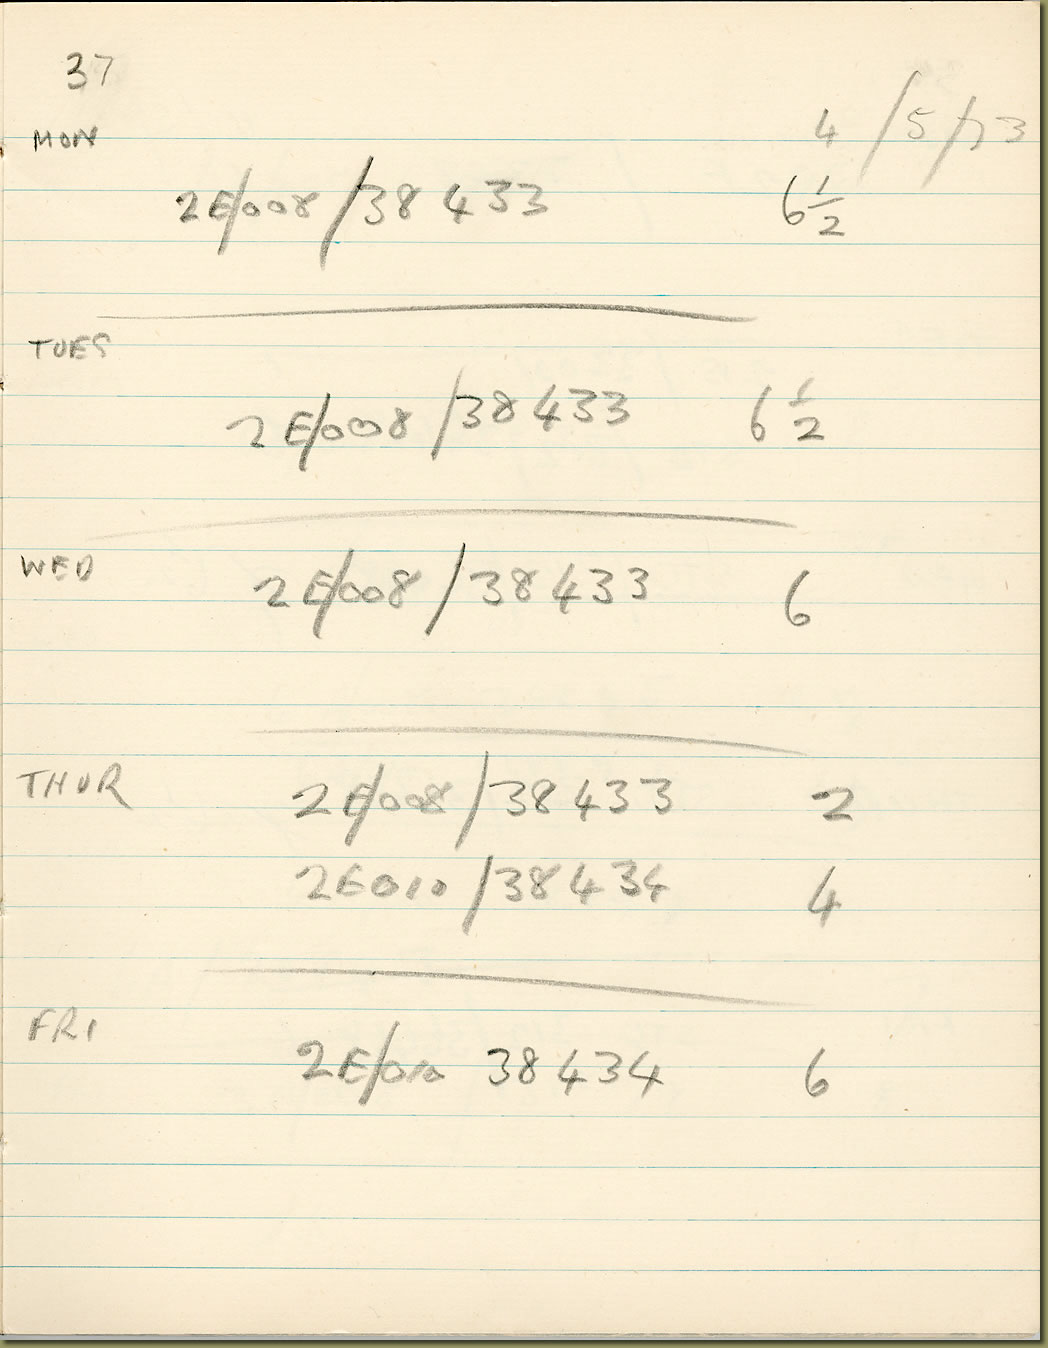 37
4/5/73
MON
2E/008/38433 6½
TUES
2E/008/38433 6½
WED
2E/008/38433 6
THUR
2E/008/38433 2
2E010/38434 4
FRI
2E/010 38434 6